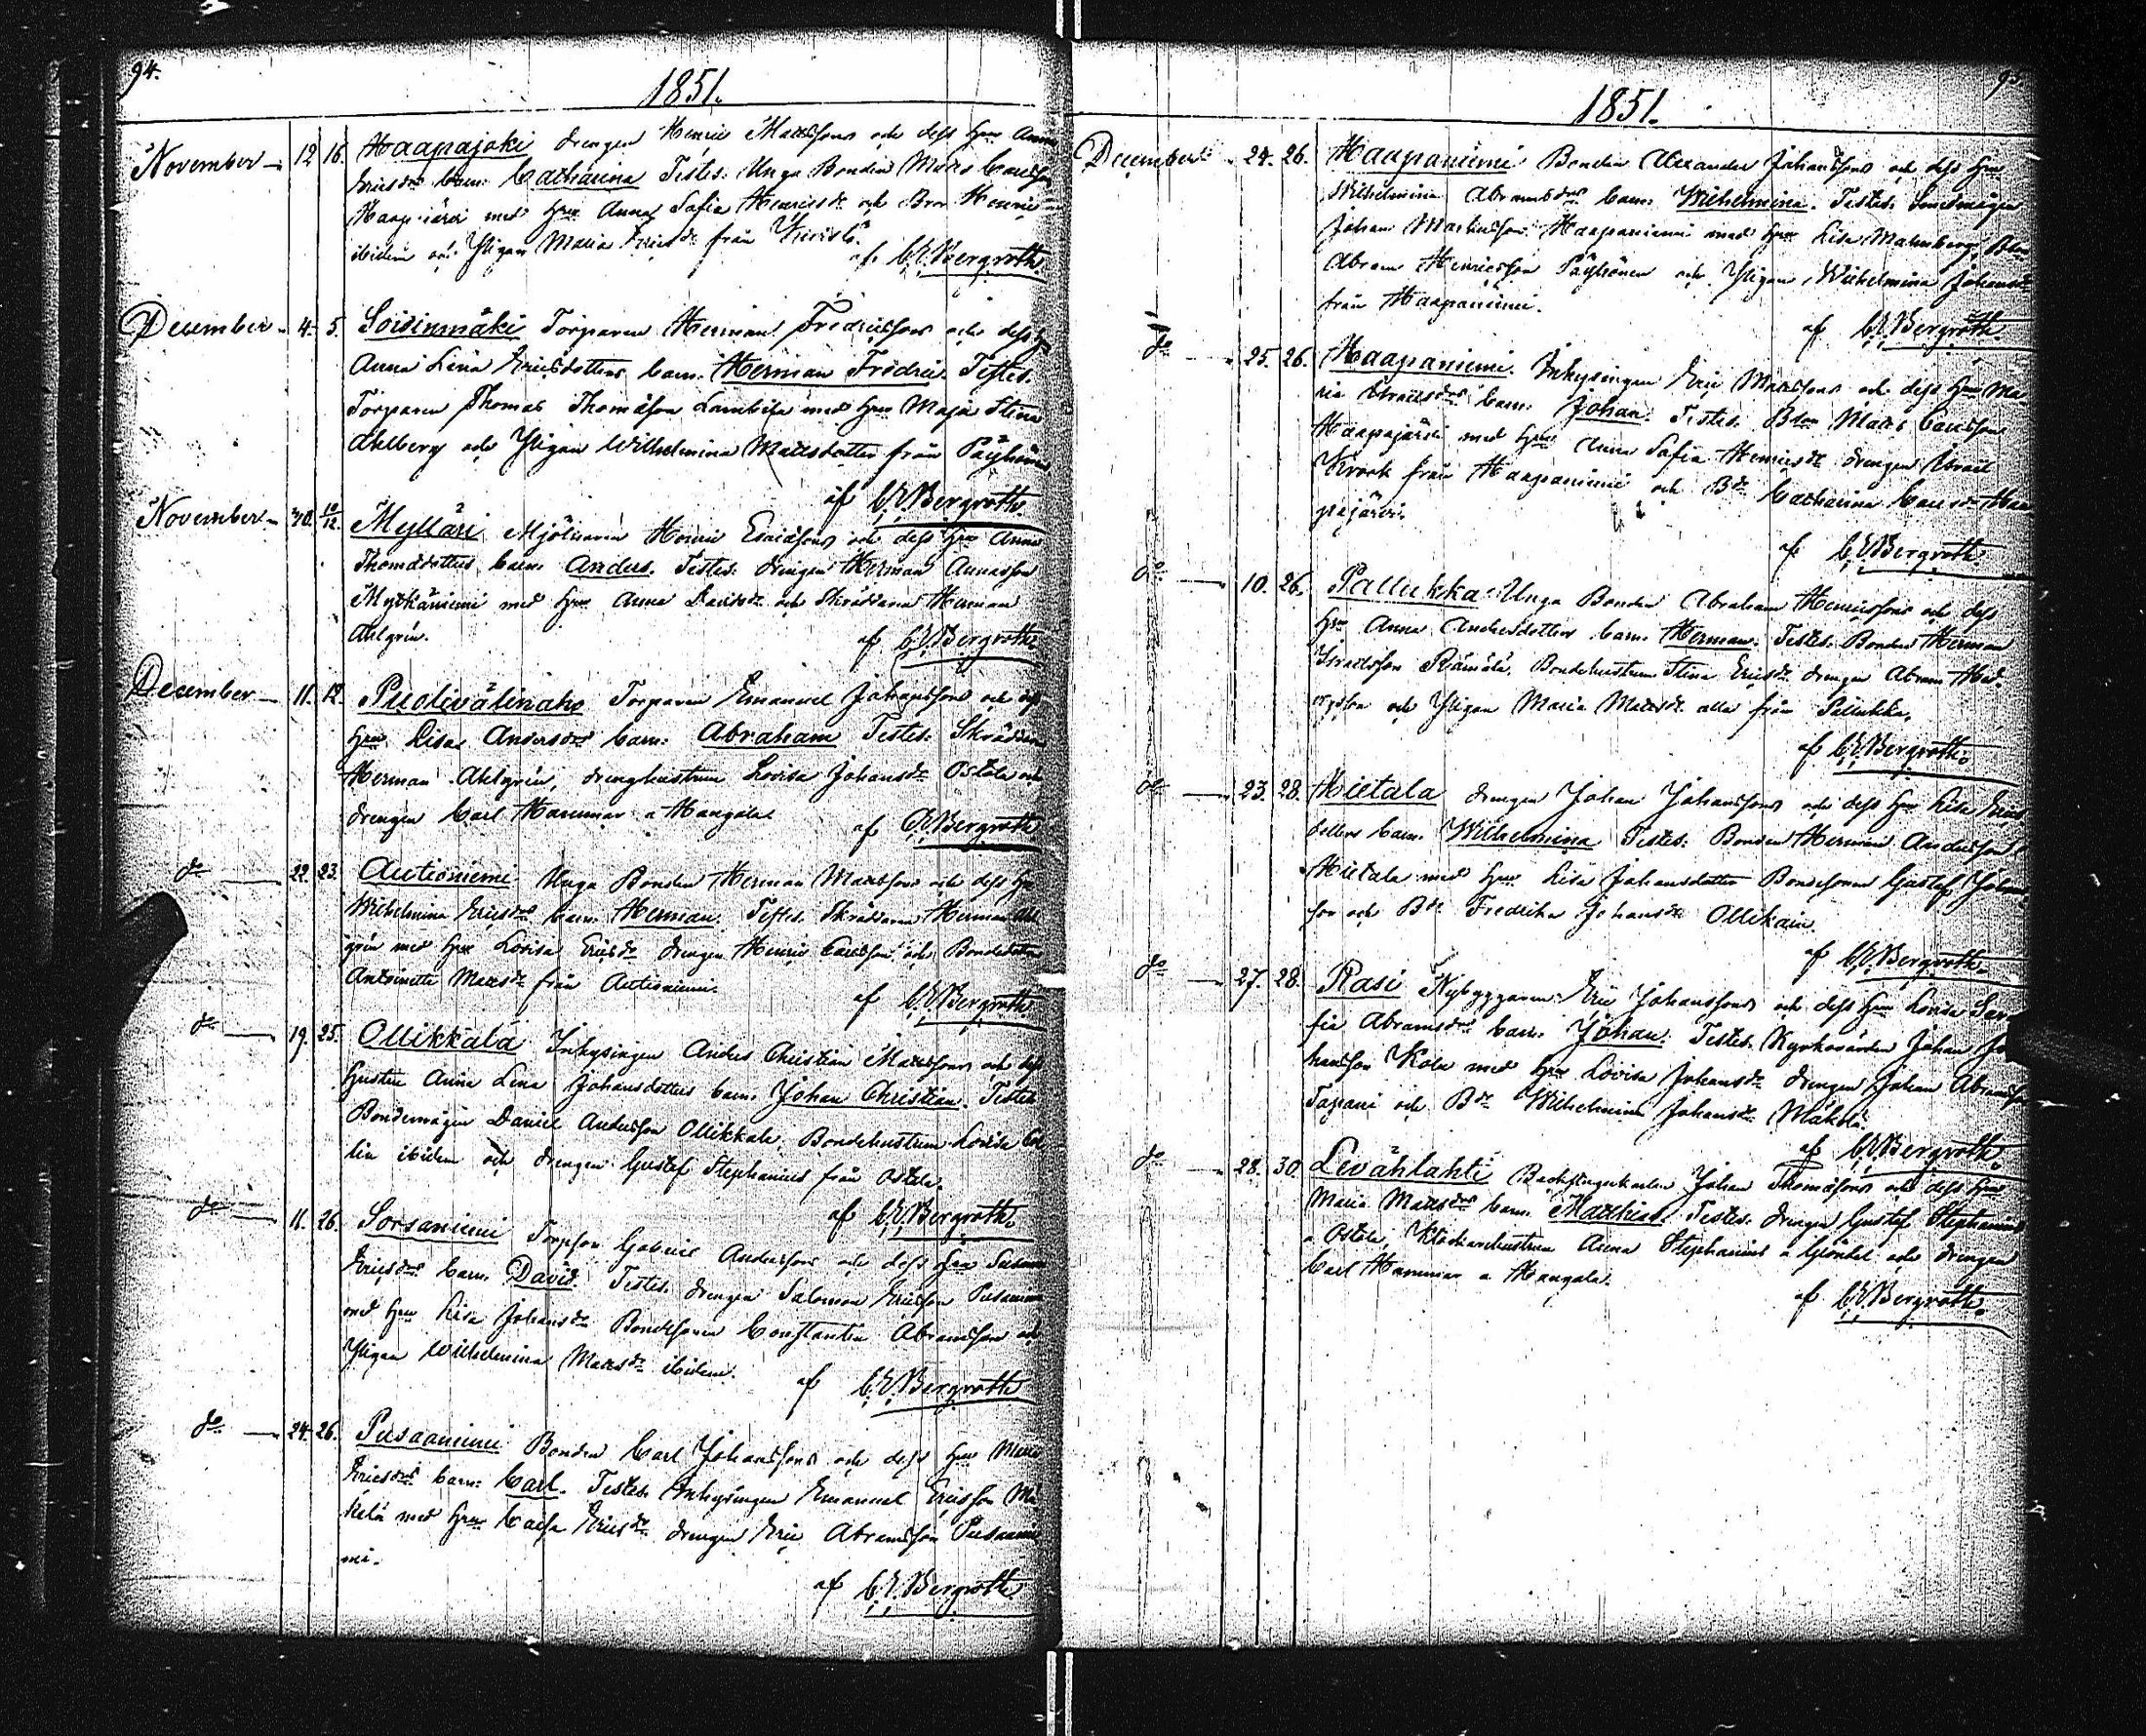 94.
1851.
November 12 16. Haapajoki drengen Henric Mattssons och dess Hru Anna
Ericsdrs barn: Catharina Testes: Unga Bonden Matts Carlsson
Haapajärvi med Hru Anna Sofia Henricsdr och Bror Henric
ibidem och Pigan Maria Ericsdr från
af C.E. Bergroth.
December 4. 5. Soidinmäki Torparen Herman Fredricssons och dess H
Anna Lena Ericsdotters barn. Herman Fredric. Testes.
Torparen Thomas Thomasson Lambila med Hru Maja Stina
Ahlberg och Pigan Wilhelmina Mattsdotter från Päyhönen
af C.E. Bergroth.
November 30. 10/12. Mylläri Mjölnaren Henric Esaiassons och dess Hru Anna
Thomasdotters barn. Anders. Testes. drengen Herman Annasson
Mytkäniemi med Hru Anna Davidsdr och Skräddaren Herman
Ahlgrén. af C.E. Bergroth.
December 11. 12. Puolivälinaho Torparen Emanuel Johanssons och dess
Hru Lisa Andersdrs barn: Abraham Testes. Skräddaren
Herman Ahlgrén, drenghustrun Lovisa Johansdr Ostola och
drengen Carl Hammar a Hangala
af C.E. Bergroth
do 22. 23. Autioniemi Unga Bonden Herman Mattssons och dess Hu
Wilhelmina Ericsdrs barn. Herman. Testes. Skräddaren Herman Ahl
grén med Hru Lovisa Ericsdr drengen Henric Carlsson och Bondedottren
Antoinetta Mattsdr från Autioniemi.
af C.E. Bergroth
do 19. 25. Ollikkala Inhysingen Anders Christian Mattssons och dess
Hustru Anna Lena Johansdotters barn. Johan Christian. Testes
Bondemågen Daniel Andersson Ollikkala, Bondehustrun Lovisa
lin ibidem och drengen Gustaf Stephanius från Ostola.
af C.E. Bergroth.
do 11. 26. Sorsaniemi Torpson Gabriel Anderssons och dess Hru Susanna
Ericsdrs barn. David. Testes. drengen Salomon Ericsson Pusaniemi
med Hru Lisa Johansdr Bondesonen Constantin Abramsson och
Pigan Wilhelmina Mattsdr ibidem.
af C.E. Bergroth
do 24. 26. Pusaaniemi Bonden Carl Johanssons och dess Hru Maria
Ericsdrs barn: Carl. Testes. Inhysingen Emanuel Ericsson Mä
kelä med Hru Caisa Ericsdr drengen Eric Abramsson Pusaanie
mi.
af C.E. Bergroth
95
1851.
December 24. 26. Haapaniemi Bonden Alexander Johanssons och dess Hru
Wilhelmina Abramsdrs barn. Wilhelmina. Testes. Smedmågen
Johan Markusson Haapaniemi med Hru Lisa Malmberg,
Abram Henricsson Päyhönen och Pigan Wilhelmina Johansdr
från Haapaniemi.
af C.E. Bergroth
do 25. 26. Haapaniemi. Inhysingen Eric Mattssons och dess Hru Ma-
ria Israelsdrs barn. Johan. Testes. Bdn Matts Carlsson
Haapajärvi med Hru Anna Sofia Henricsdr drengen Israel
Krook från Haapaniemi och Bdr Catharina Carlsdr Haa
pajärvi.
af C.E. Bergroth.
do 10. 26. Pallukka Unga Bonden Abraham Henricssons och dess
Hru Anna Andersdotters barn. Herman. Testes. Bonden Herman
Israelsson Rämälä, Bondehustrun Stina Ericsdr drengen Abram
och Pigan Maria Mattsdr alla från Pallukka.
af C.E. Bergroth.
do 23. 28. Hietala drengen Johan Johanssons och dess Hru Lisa Erics
dotters barn. Wilhelmina Testes: Bonden Herman Andersson
Hietala med Hru Lisa Johansdotter Bondesonen Gustaf Johans
son och Bdr Fredrika Johansdr Ollikain.
af C.E. Bergroth.
do 27. 28. Rasi Nybyggaren Eric Johanssons och dess Hru Lovisa
fia Abramsdrs barn. Johan. Testes. Kyrkovärden Johan Jo
hansson Kola med Hru Lovisa Johansdr drengen Johan Abramsson
Tapani och Bdr Wilhelmina Johansdr Mäkelä.
af C.E. Bergroth.
do 28. 30. Levählahti Backstugukarlen Johan Thomassons och dess Hru
Maria Mattsdrs barn. Matthias. Testes. drengen Gustaf Stephanius
a Ostola, Klockarehustrun Anna Stephanius a och drengen
Carl Hammar a Hangala.
af C.E. Bergroth.